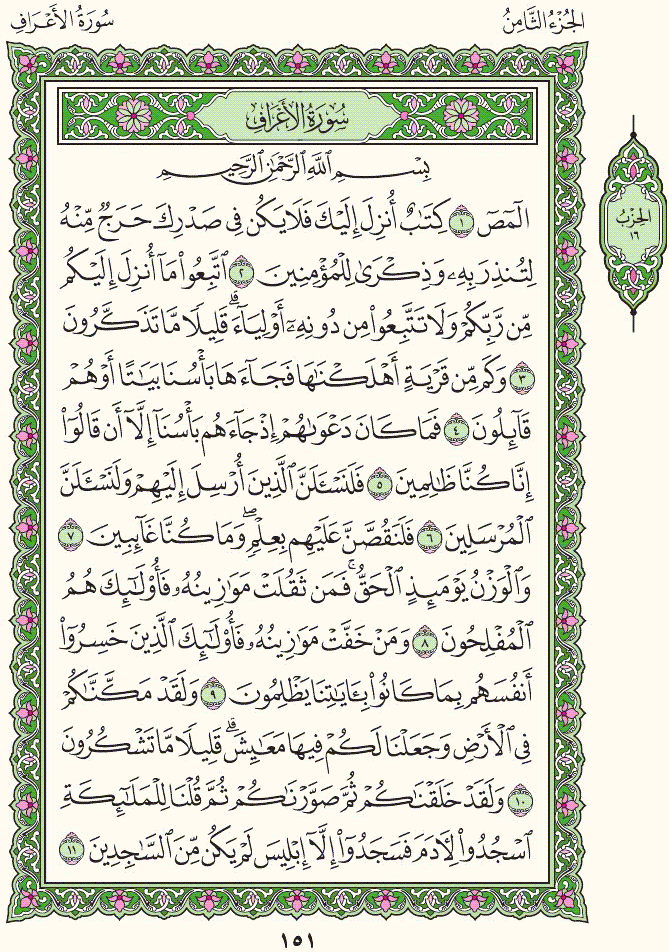 الجُزْءُ الثَّامِنُ
سُورَةُ الأَعْرَافِ
سُورَةُ الأَعْرَافِ
الحِزْبُ
١٦
بِسْمِ ٱللَّهِ ٱلرَّحْمَٰنِ ٱلرَّحِيمِ
الٓمٓصٓ ١ كِتَٰبٌ أُنزِلَ إِلَيْكَ فَلَا يَكُن فِي صَدْرِكَ حَرَجٌ مِّنْهُ
لِتُنذِرَ بِهِۦ وَذِكْرَىٰ لِلْمُؤْمِنِينَ ٢ ٱتَّبِعُوا۟ مَآ أُنزِلَ إِلَيْكُم
مِّن رَّبِّكُمْ وَلَا تَتَّبِعُوا۟ مِن دُونِهِۦٓ أَوْلِيَآءَ ۗ قَلِيلًا مَّا تَذَكَّرُونَ
٣ وَكَم مِّن قَرْيَةٍ أَهْلَكْنَٰهَا فَجَآءَهَا بَأْسُنَا بَيَٰتًا أَوْ هُمْ
قَآئِلُونَ ٤ فَمَا كَانَ دَعْوَىٰهُمْ إِذْ جَآءَهُم بَأْسُنَآ إِلَّآ أَن قَالُوٓا۟
إِنَّا كُنَّا ظَٰلِمِينَ ٥ فَلَنَسْـَٔلَنَّ ٱلَّذِينَ أُرْسِلَ إِلَيْهِمْ وَلَنَسْـَٔلَنَّ
ٱلْمُرْسَلِينَ ٦ فَلَنَقُصَّنَّ عَلَيْهِم بِعِلْمٍ ۖ وَمَا كُنَّا غَآئِبِينَ ٧
وَٱلْوَزْنُ يَوْمَئِذٍ ٱلْحَقُّ ۚ فَمَن ثَقُلَتْ مَوَٰزِينُهُۥ فَأُو۟لَٰٓئِكَ هُمُ
ٱلْمُفْلِحُونَ ٨ وَمَنْ خَفَّتْ مَوَٰزِينُهُۥ فَأُو۟لَٰٓئِكَ ٱلَّذِينَ خَسِرُوٓا۟
أَنفُسَهُم بِمَا كَانُوا۟ بِـَٔايَٰتِنَا يَظْلِمُونَ ٩ وَلَقَدْ مَكَّنَّٰكُمْ
فِي ٱلْأَرْضِ وَجَعَلْنَا لَكُمْ فِيهَا مَعَٰيِشَ ۗ قَلِيلًا مَّا تَشْكُرُونَ
١٠ وَلَقَدْ خَلَقْنَٰكُمْ ثُمَّ صَوَّرْنَٰكُمْ ثُمَّ قُلْنَا لِلْمَلَٰٓئِكَةِ
ٱسْجُدُوا۟ لِـَٔادَمَ فَسَجَدُوٓا۟ إِلَّآ إِبْلِيسَ لَمْ يَكُن مِّنَ ٱلسَّٰجِدِينَ ١١
١٥١